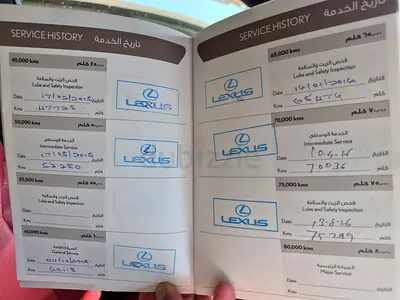 SERVICE HISTORY تاريخ الخدمة
45,000 kms ٤٥,٠٠٠ كلم
فحص الزيت والسلامة
Lube and Safety Inspection
Date التاريخ
Kms 47778 كلم
LEXUS
50,000 kms ٥٠,٠٠٠ كلم
الخدمة الوسطى
Intermediate Service
Date 17/05/2015 التاريخ
Kms 52280 كلم
LEXUS
55,000 kms ٥٥,٠٠٠ كلم
فحص الزيت والسلامة
Lube and Safety Inspection
Date التاريخ
Kms كلم
60,000 kms ٦٠,٠٠٠ كلم
General Service
Date التاريخ
Kms 60178 كلم
LEXUS
SERVICE HISTORY تاريخ الخدمة
65,000 kms ٦٥,٠٠٠ كلم
فحص الزيت والسلامة
Lube and Safety Inspection
Date 14/01/2016 التاريخ
Kms 65476 كلم
LEXUS
70,000 kms ٧٠,٠٠٠ كلم
الخدمة الوسطى
Intermediate Service
Date 10.4.16 التاريخ
Kms 70036 كلم
LEXUS
75,000 kms ٧٥,٠٠٠ كلم
فحص الزيت والسلامة
Lube and Safety Inspection
Date 13-8-16 التاريخ
Kms كلم
LEXUS
80,000 kms ٨٠,٠٠٠ كلم
الصيانة الرئيسية
Major Service
Date
Kms
dubizzle